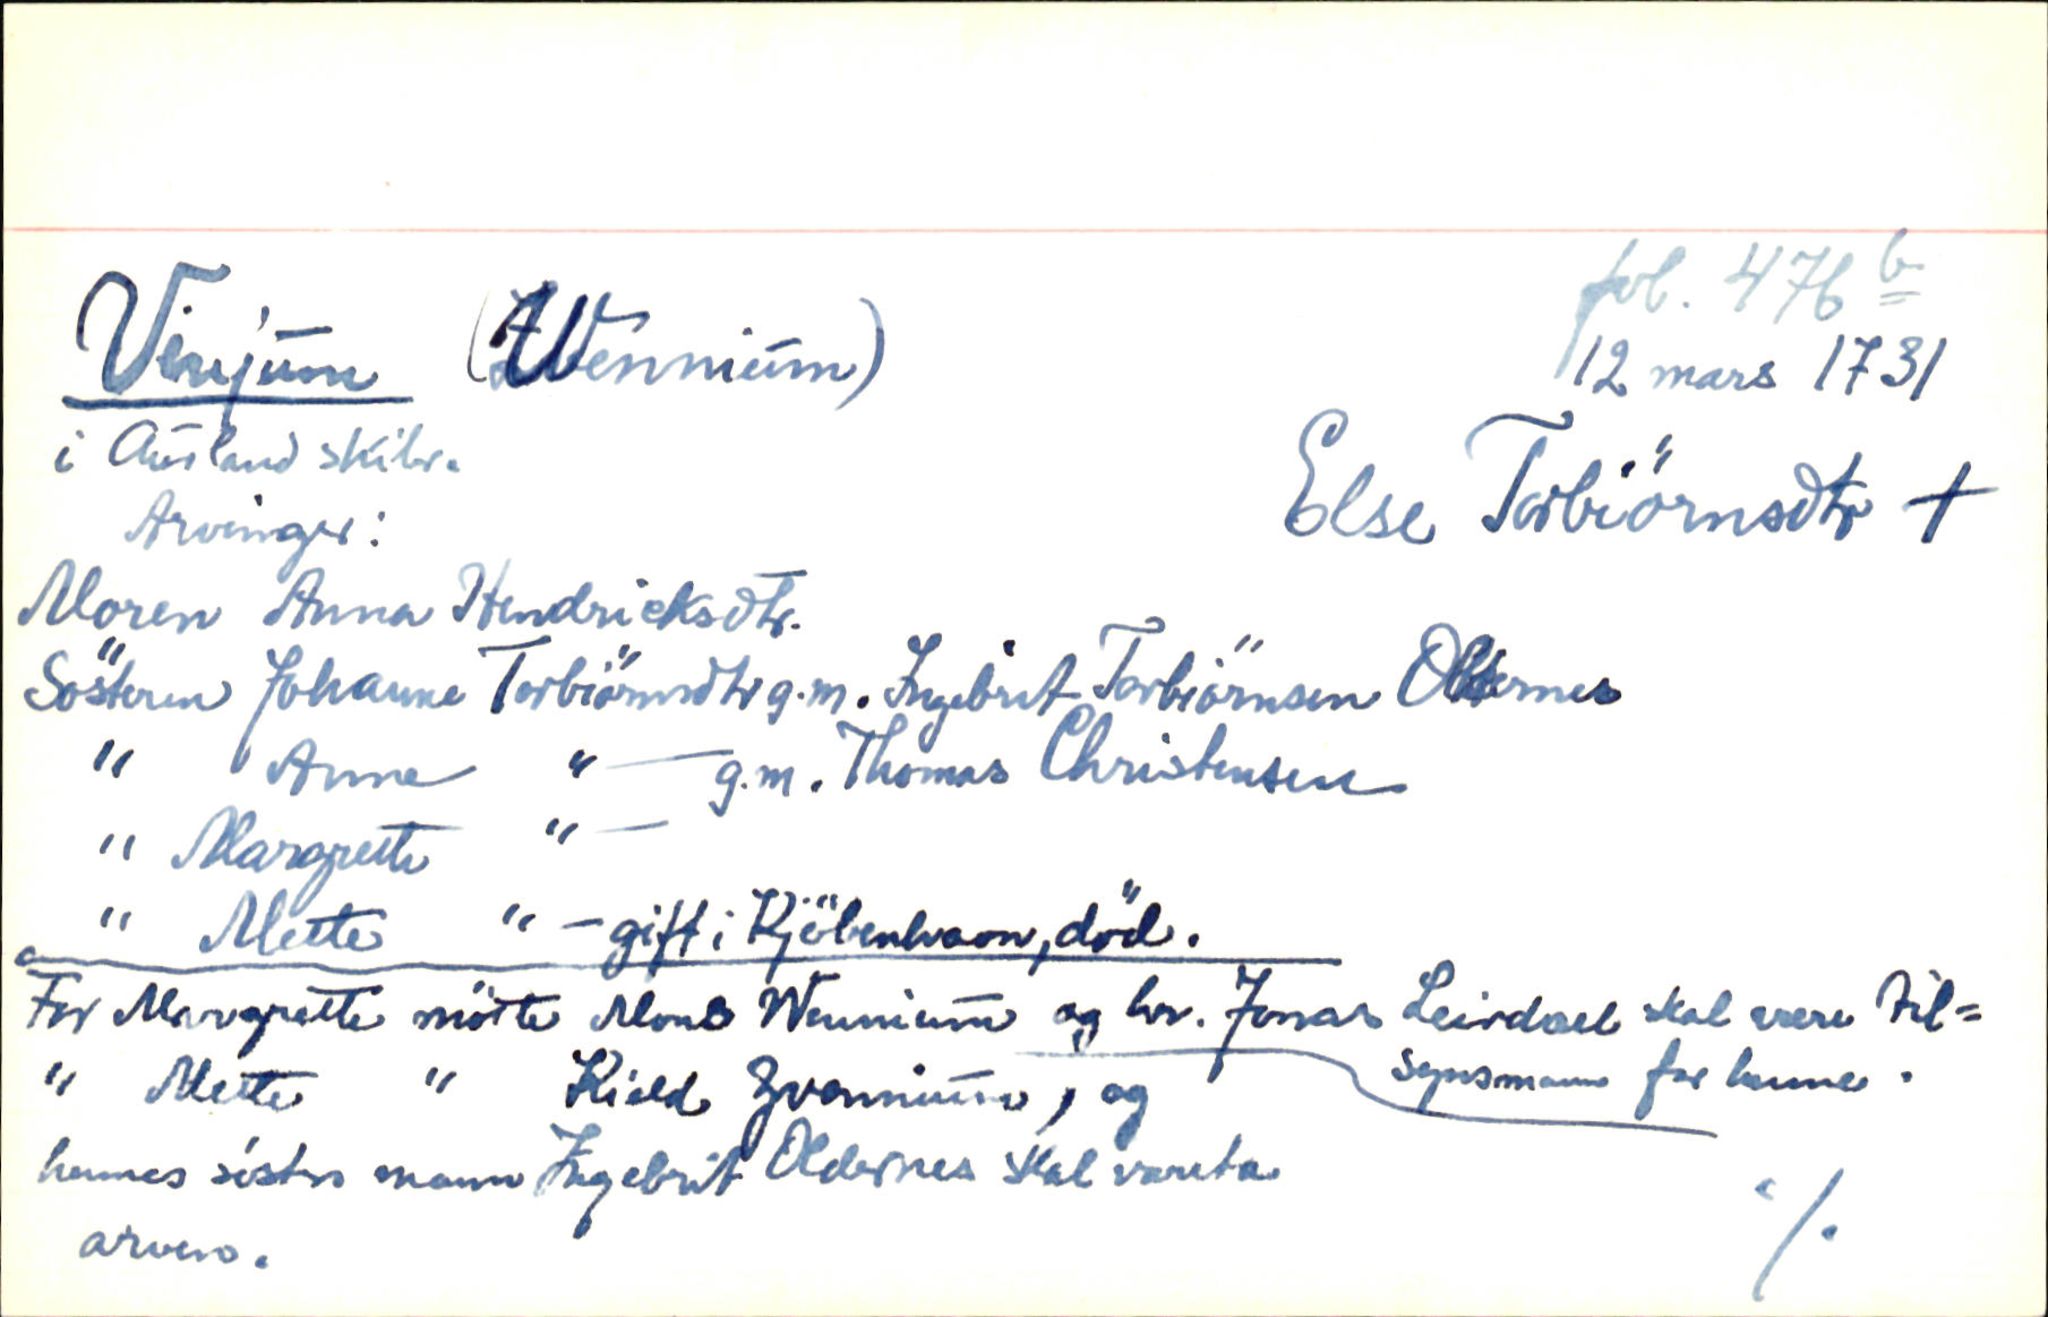 fol. 476 b
Vinjum (Wennium)
12 mars 1731
i Aurland skibr.
Else Torbiörnsdtr +
Arvinger:
Moren Anna Hendricksdtr.
Sösteren Johanne Torbiörnsdtr g.m. Ingebrit Torbiörnsen Oldernes
" Anne " — g.m. Thomas Christensen
" Margrette " —
" Mette " — gift i Kjöbenhavn, död.
For Margrette mötte Mons Wennium og hr. Jonas Leirdael skal være til=
synsmann for henne.
" Mette " Kield Zvennium, og
hennes sösters mann Ingebrit Oldernes skal vareta
arven.
./.